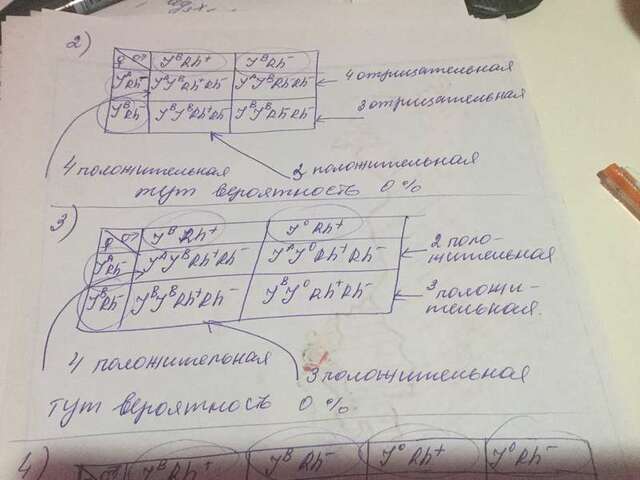 2)
♀ ♂ JᴮRh⁺ JᴮRh⁻
JᴬRh⁻ JᴬJᴮRh⁺Rh⁻ JᴬJᴮRh⁻Rh⁻
JᴮRh⁻ JᴮJᴮRh⁺Rh⁻ JᴮJᴮRh⁻Rh⁻
4 отрицательная
3 отрицательная
4 положительная
3 положительная
тут вероятность 0 %
3)
♀ ♂ JᴮRh⁺ J⁰Rh⁺
JᴬRh⁻ JᴬJᴮRh⁺Rh⁻ JᴬJ⁰Rh⁺Rh⁻
JᴮRh⁻ JᴮJᴮRh⁺Rh⁻ JᴮJ⁰Rh⁺Rh⁻
2 поло-
жительная
3 положи-
тельная.
4 положительная
3 положительная
тут вероятность 0 %.
4)
JᴮRh⁺ JᴮRh⁻ J⁰Rh⁺ J⁰Rh⁻